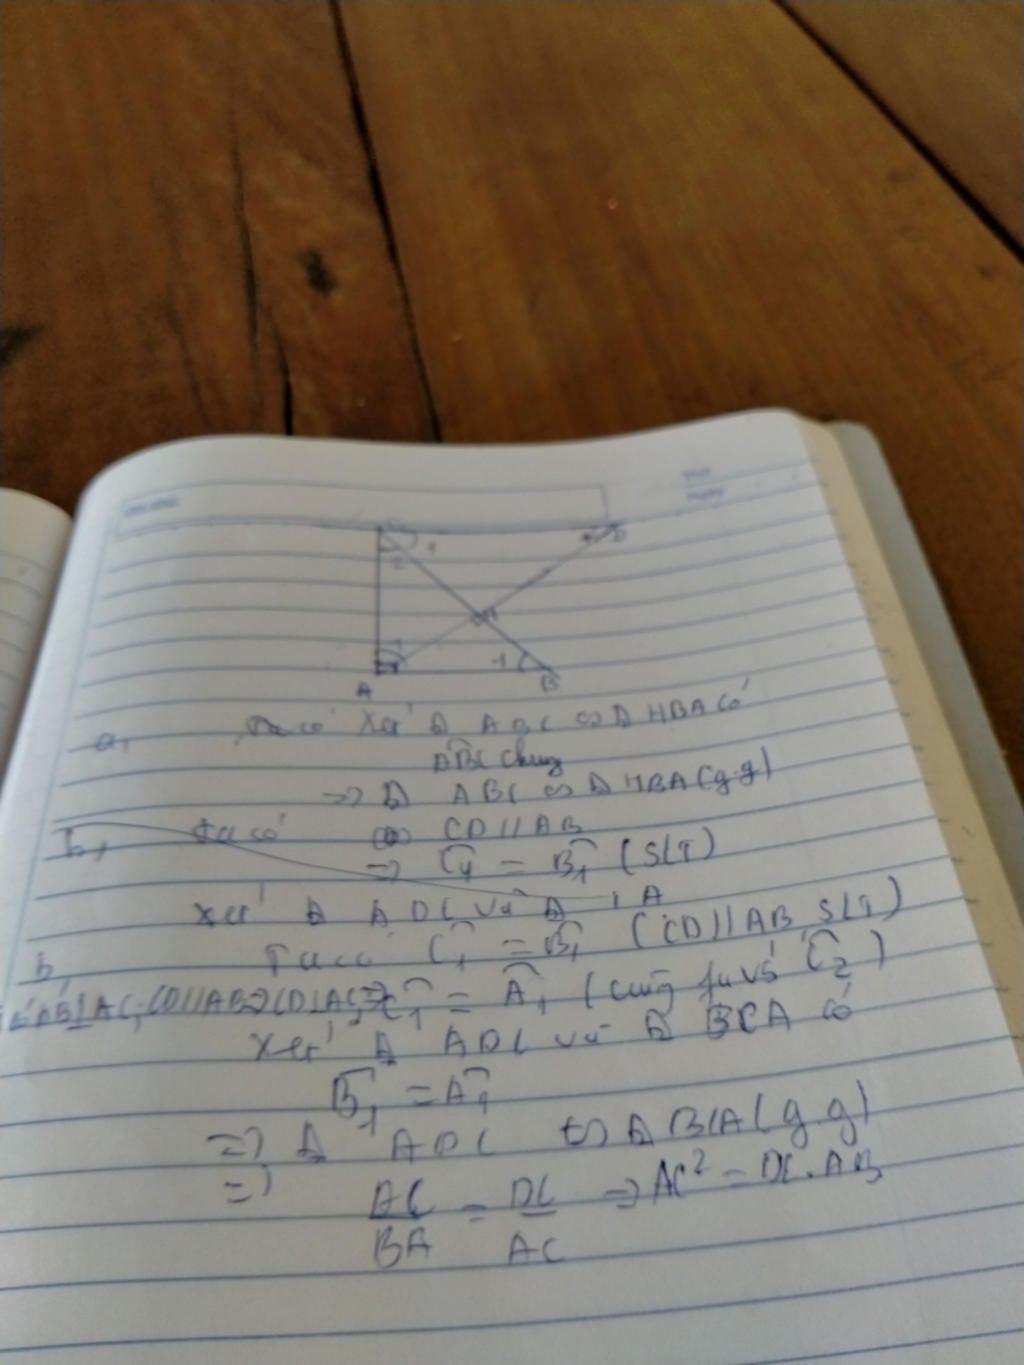 1
2
D
H
1
1
A
B
a, Ta có Xét Δ ABC ∽ Δ HBA có
ABC chung
=> Δ ABC ∽ Δ HBA (g.g)
b, Ta có CD // AB
=> = B1 (SLT)
Xét Δ ADC và Δ A
b, Ta có C1 = B1 (CD // AB, SLT)
AB⊥AC, CD//AB => CD⊥AC => C1 = A1 (cùng C2)
Xét Δ ADC và Δ BCA có
B1 = A1
=> Δ ADC ∽ Δ BCA (g.g)
=> AC/BA = DC/AC => AC² = DC.AB